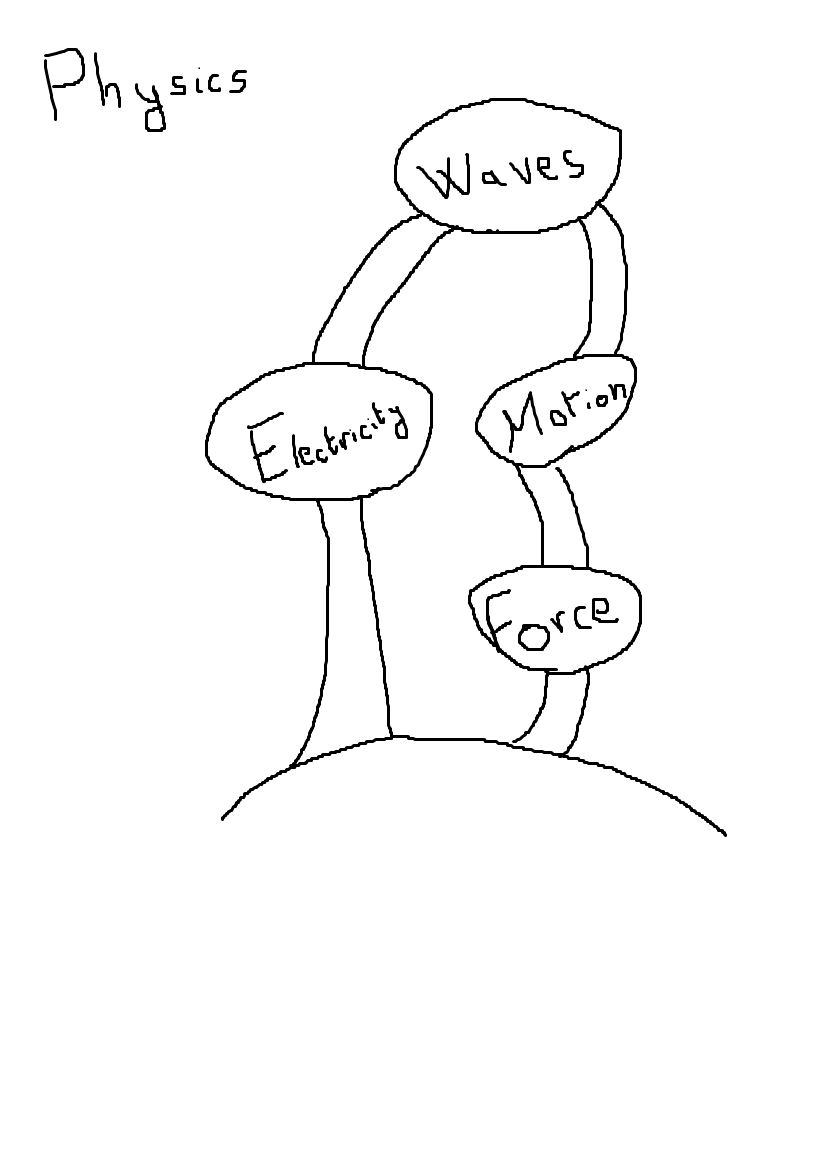 Physics
Waves
Electricity
Motion
Force